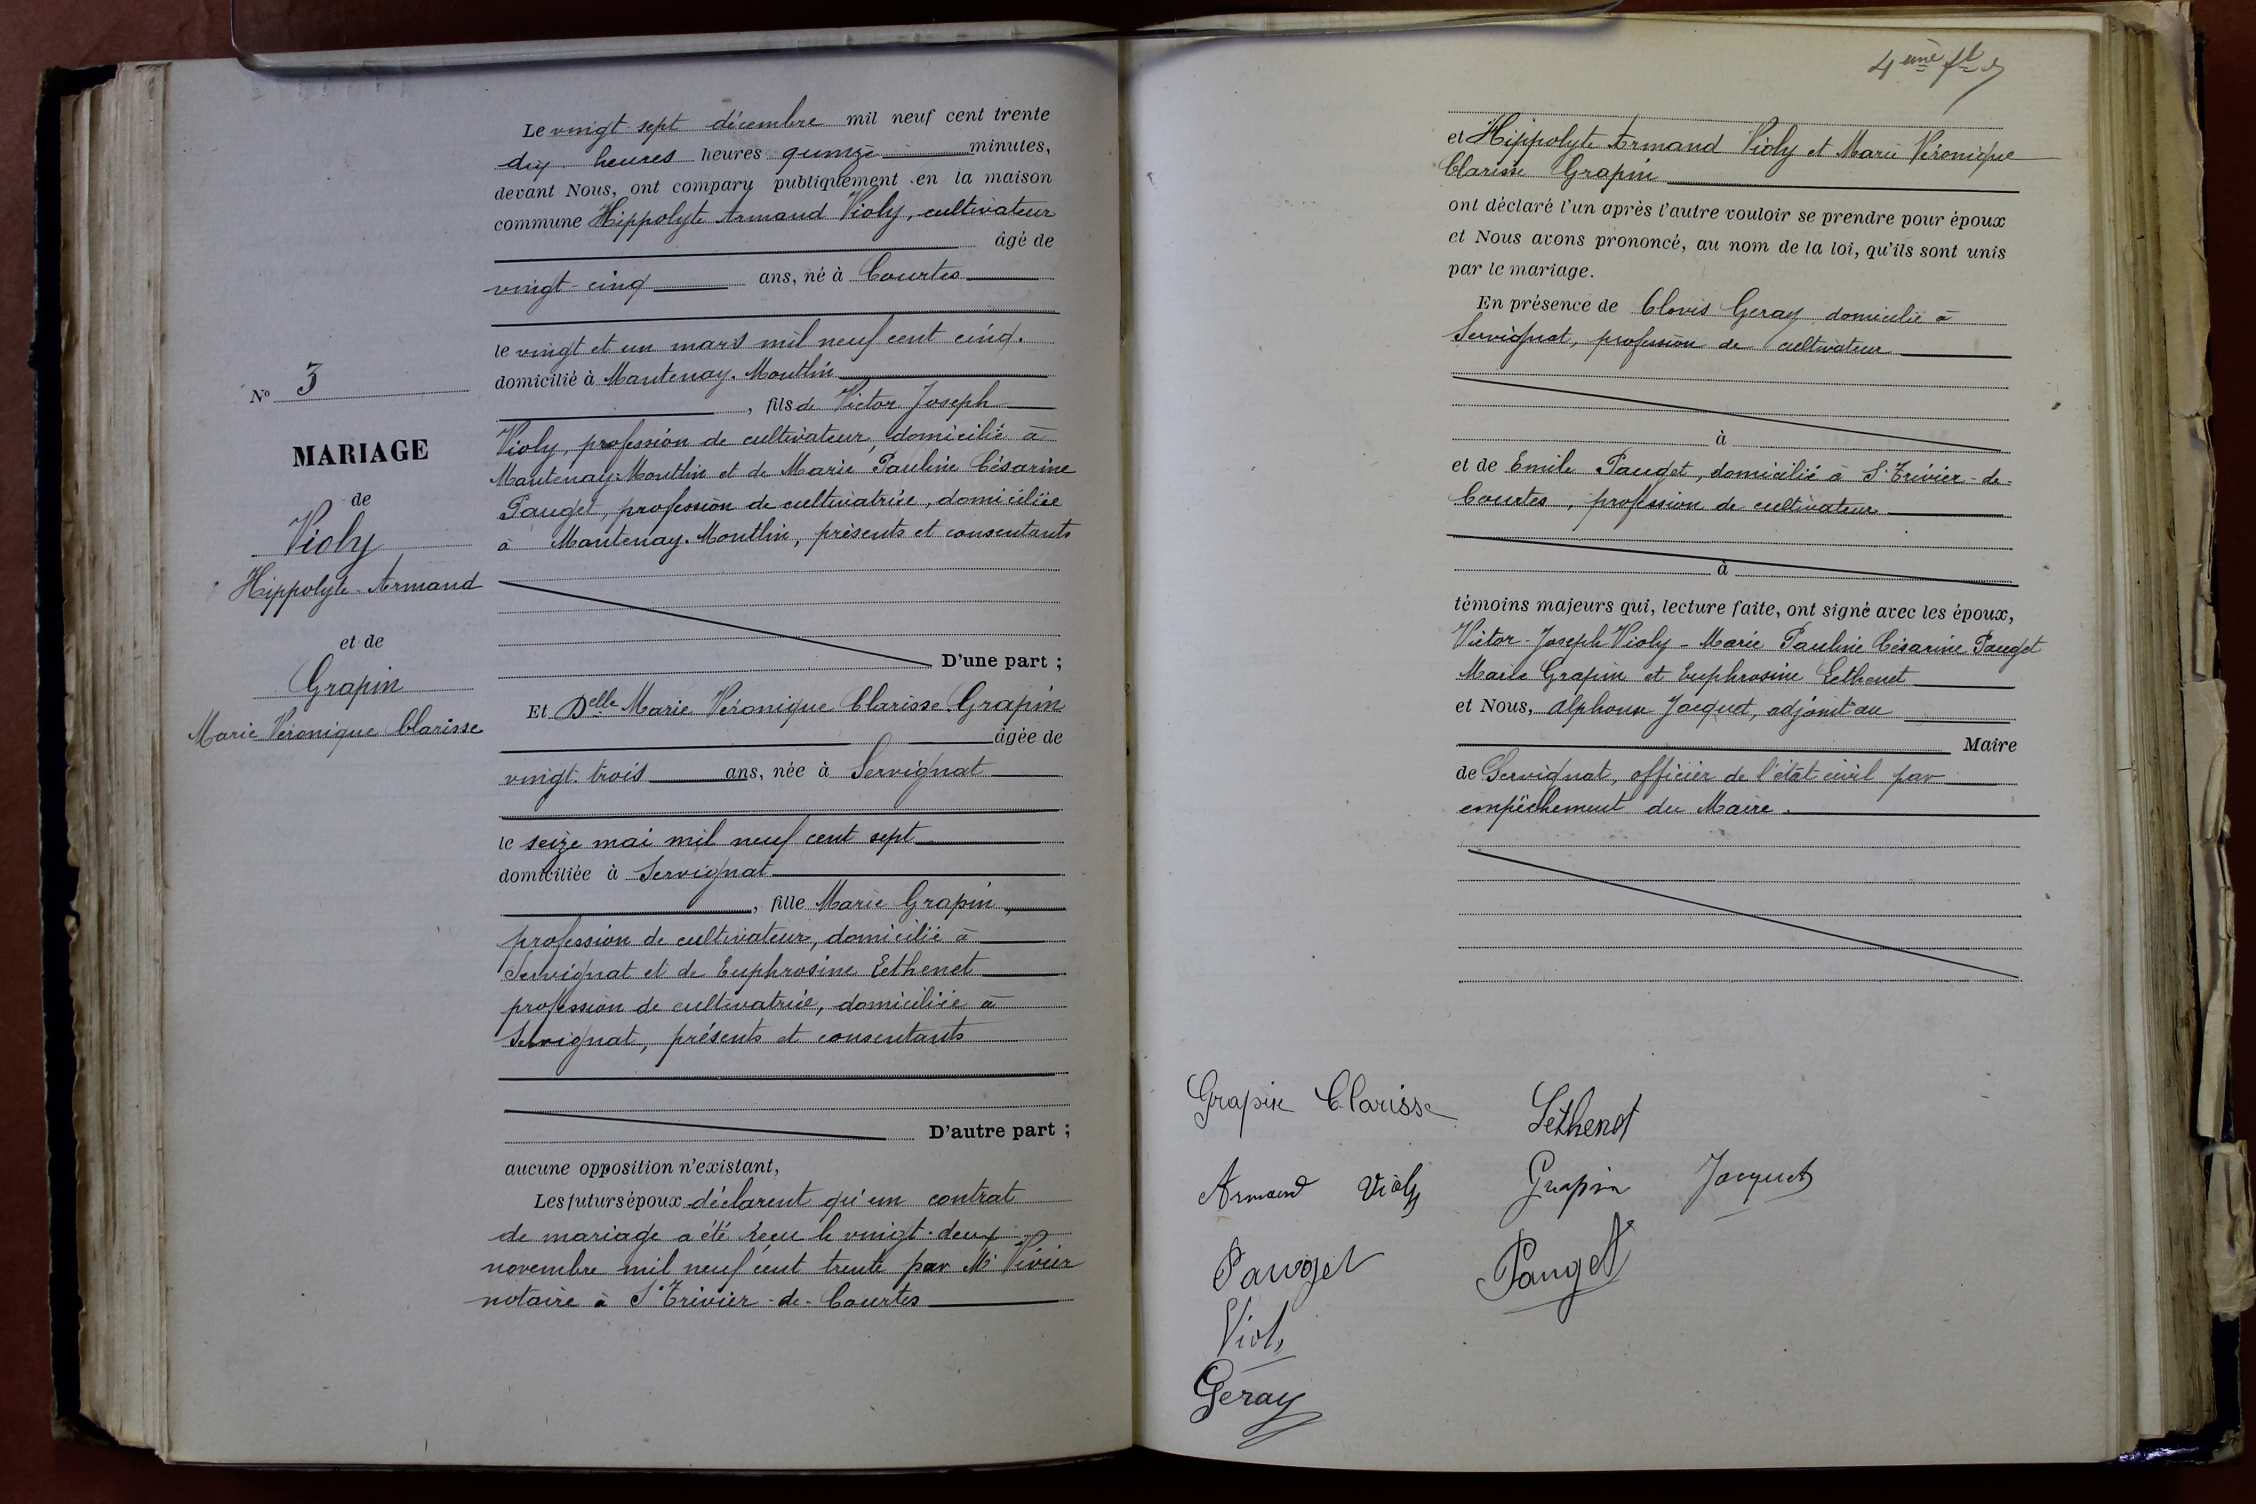 Le vingt sept décembre mil neuf cent trente
dix heures heures quinze minutes,
devant Nous, ont comparu publiquement en la maison
commune Hippolyte Armand Violy, cultivateur
âgé de
vingt-cinq ans, né à Courtes
le vingt et un mars mil neuf cent cinq.
domicilié à Mantenay-Montlin
, fils de Victor Joseph
Violy, profession de cultivateur, domicilié à
Mantenay-Montlin et de Marie Pauline Césarine
Pauget, profession de cultivatrice, domiciliée
à Mantenay-Montlin, présents et consentants
D'une part ;
Nº 3
MARIAGE
de
Violy
Hippolyte-Armand
et de
Grapin
Marie Véronique Clarisse
Et Delle Marie Véronique Clarisse Grapin
âgée de
vingt-trois ans, née à Servignat
le seize mai mil neuf cent sept
domiciliée à Servignat
, fille Marie Grapin,
profession de cultivateur, domicilié à
Servignat et de Euphrosine Lethenet
profession de cultivatrice, domiciliée à
Servignat, présents et consentants
D'autre part ;
aucune opposition n'existant,
Les futurs époux déclarent qu'un contrat
de mariage a été reçu le vingt-deux
novembre mil neuf cent trente par Me Vivier
notaire à St Trivier-de-Courtes
4ème
et Hippolyte Armand Violy et Marie Véronique
Clarisse Grapin
ont déclaré l'un après l'autre vouloir se prendre pour époux
et Nous avons prononcé, au nom de la loi, qu'ils sont unis
par le mariage.
En présence de Clovis Geray domicilié à
Servignat, profession de cultivateur
à
et de Emile Pauget, domicilié à St Trivier-de-
Courtes, profession de cultivateur
à
témoins majeurs qui, lecture faite, ont signé avec les époux,
Victor-Joseph Violy - Marie Pauline Césarine Pauget
Marie Grapin et Euphrosine Lethenet
et Nous, Alphonse Jacquet, adjoint au
Maire
de Servignat, officier de l'état civil par
empêchement du Maire.
Grapin Clarisse Lethenet
Armand Violy Grapin Jacquet
Pauget Pauget
Violy
Geray